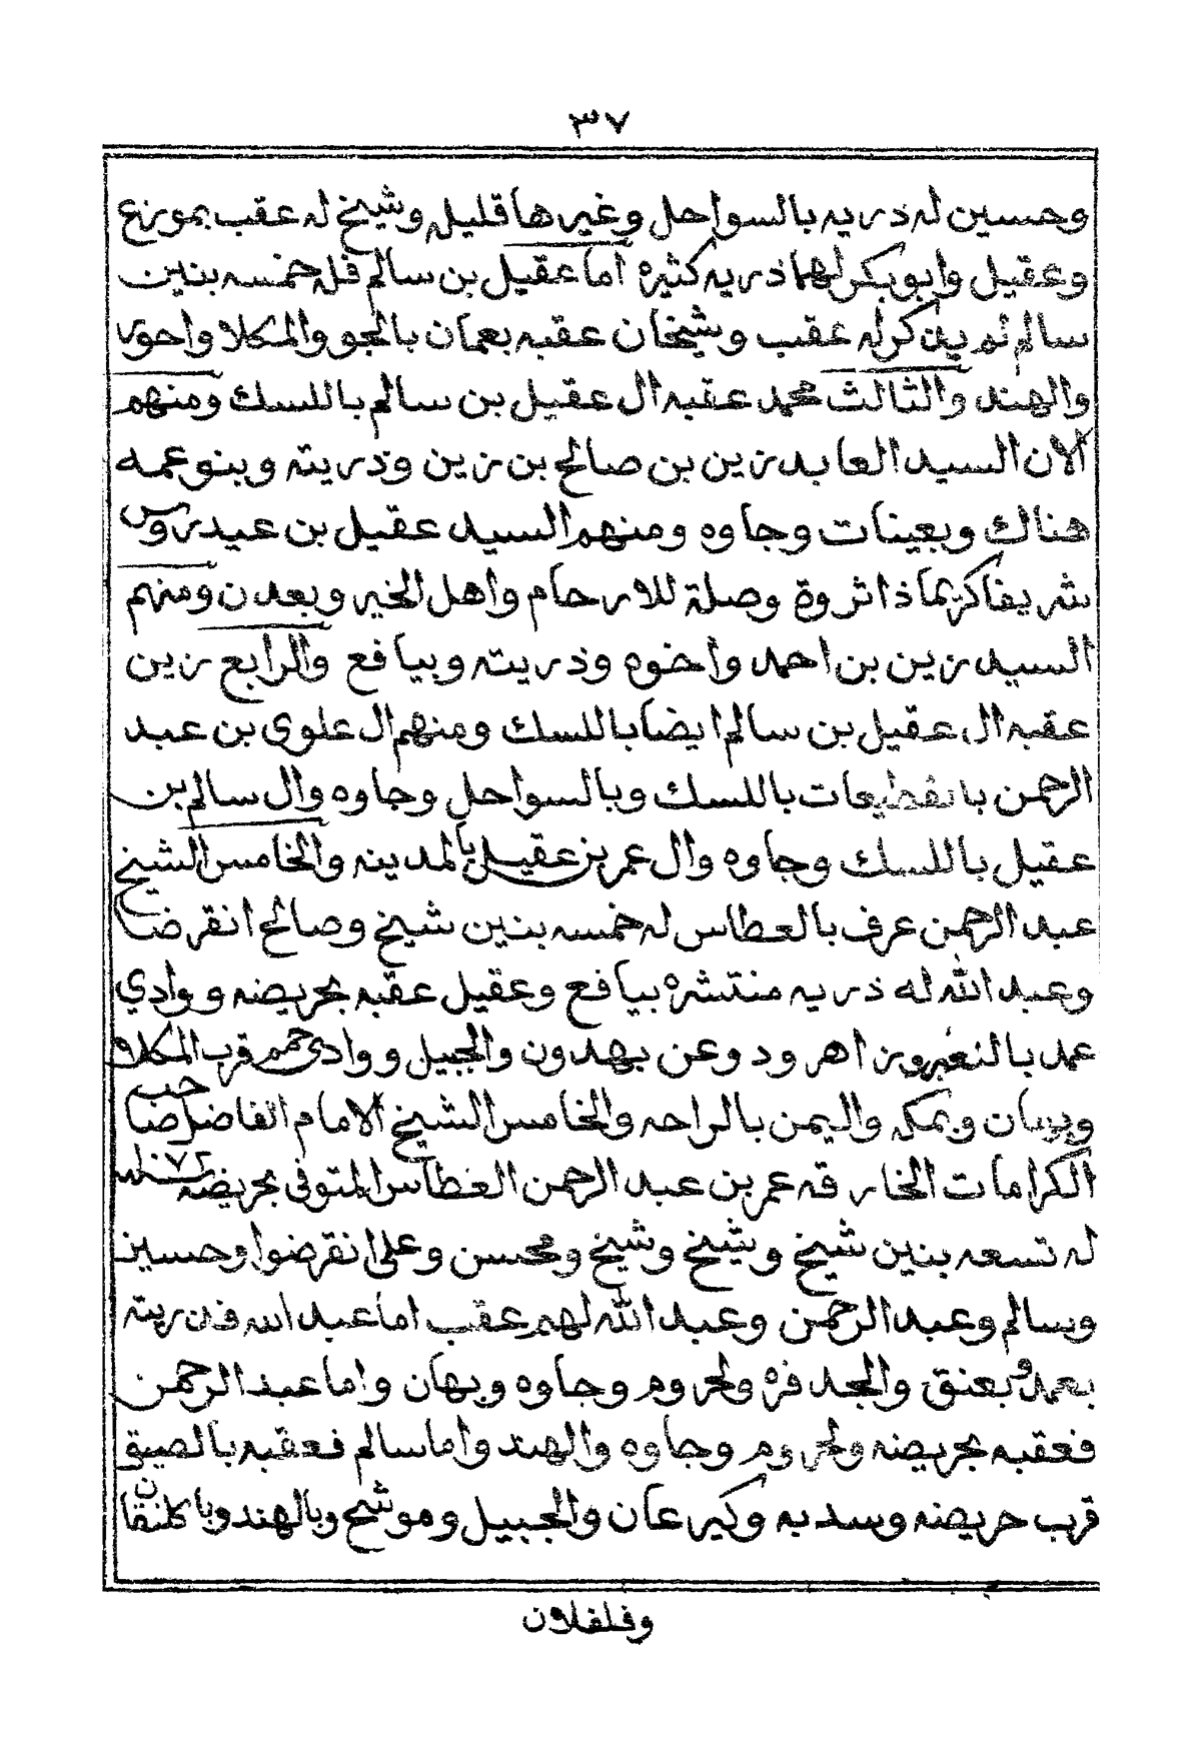 ٣٧
وحسين له ذريه بالسواحل وغيرها قليل وشيخ له عقب بموزع
وعقيل وابوبكر لهما ذريه كثيره اما عقيل بن سالم فله خمسه بنين
سالم لم يذكر له عقب وشيخان عقبه بعمان بالجو والمكلا واحور
والهند والثالث محمد عقبه ال عقيل بن سالم باللسك ومنهم
الان السيد العابد زين بن صالح بن زين وذريته وبنو عمه
هناك وبعينات وجاوه ومنهم السيد عقيل بن عيدروس
شريفا كريما ذا ثروة وصلة للارحام واهل الخير وبعدن ومنهم
السيد زين بن احمد واخوه وذريته وبيافع والرابع زين
عقبه ال عقيل بن سالم ايضا باللسك ومنهم ال علوى بن عبد
الرحمن بالقطيعات باللسك وبالسواحل وجاوه وال سالم بن
عقيل باللسك وجاوه وال عمر بن عقيل بالمدينه والخامس الشيخ
عبد الرحمن عرف بالعطاس له خمسه بنين شيخ وصالح انقرضا
وعبد الله له ذريه منتشره بيافع وعقيل عقبه بحريضه ووادي
عمد بالنعير وعن بهدون والجبيل ووادى حمم قرب المكلا و
واليمن بالراحه والخامس الشيخ الامام الفاضل صاحب
الكرامات الخارقه عمر بن عبد الرحمن العطاس المتوفى بحريضه ١٠٧٢ سنه
له تسعه بنين شيخ وشيخ وشيخ ومحسن وعلى انقرضوا وحسين
وسالم وعبد الرحمن وعبد الله لهم عقب اما عبد الله فذريته
بعمد وبعنق والجدفره ولحروم وجاوه وبهان واما عبد الرحمن
فعقبه بحريضه ولحروم وجاوه والهند واما سالم فعقبه بالصيق
قرب حريضه وسدبه وكيرعان والجبيل وموشح وبالهند وبا كلنقان
وفلفلان